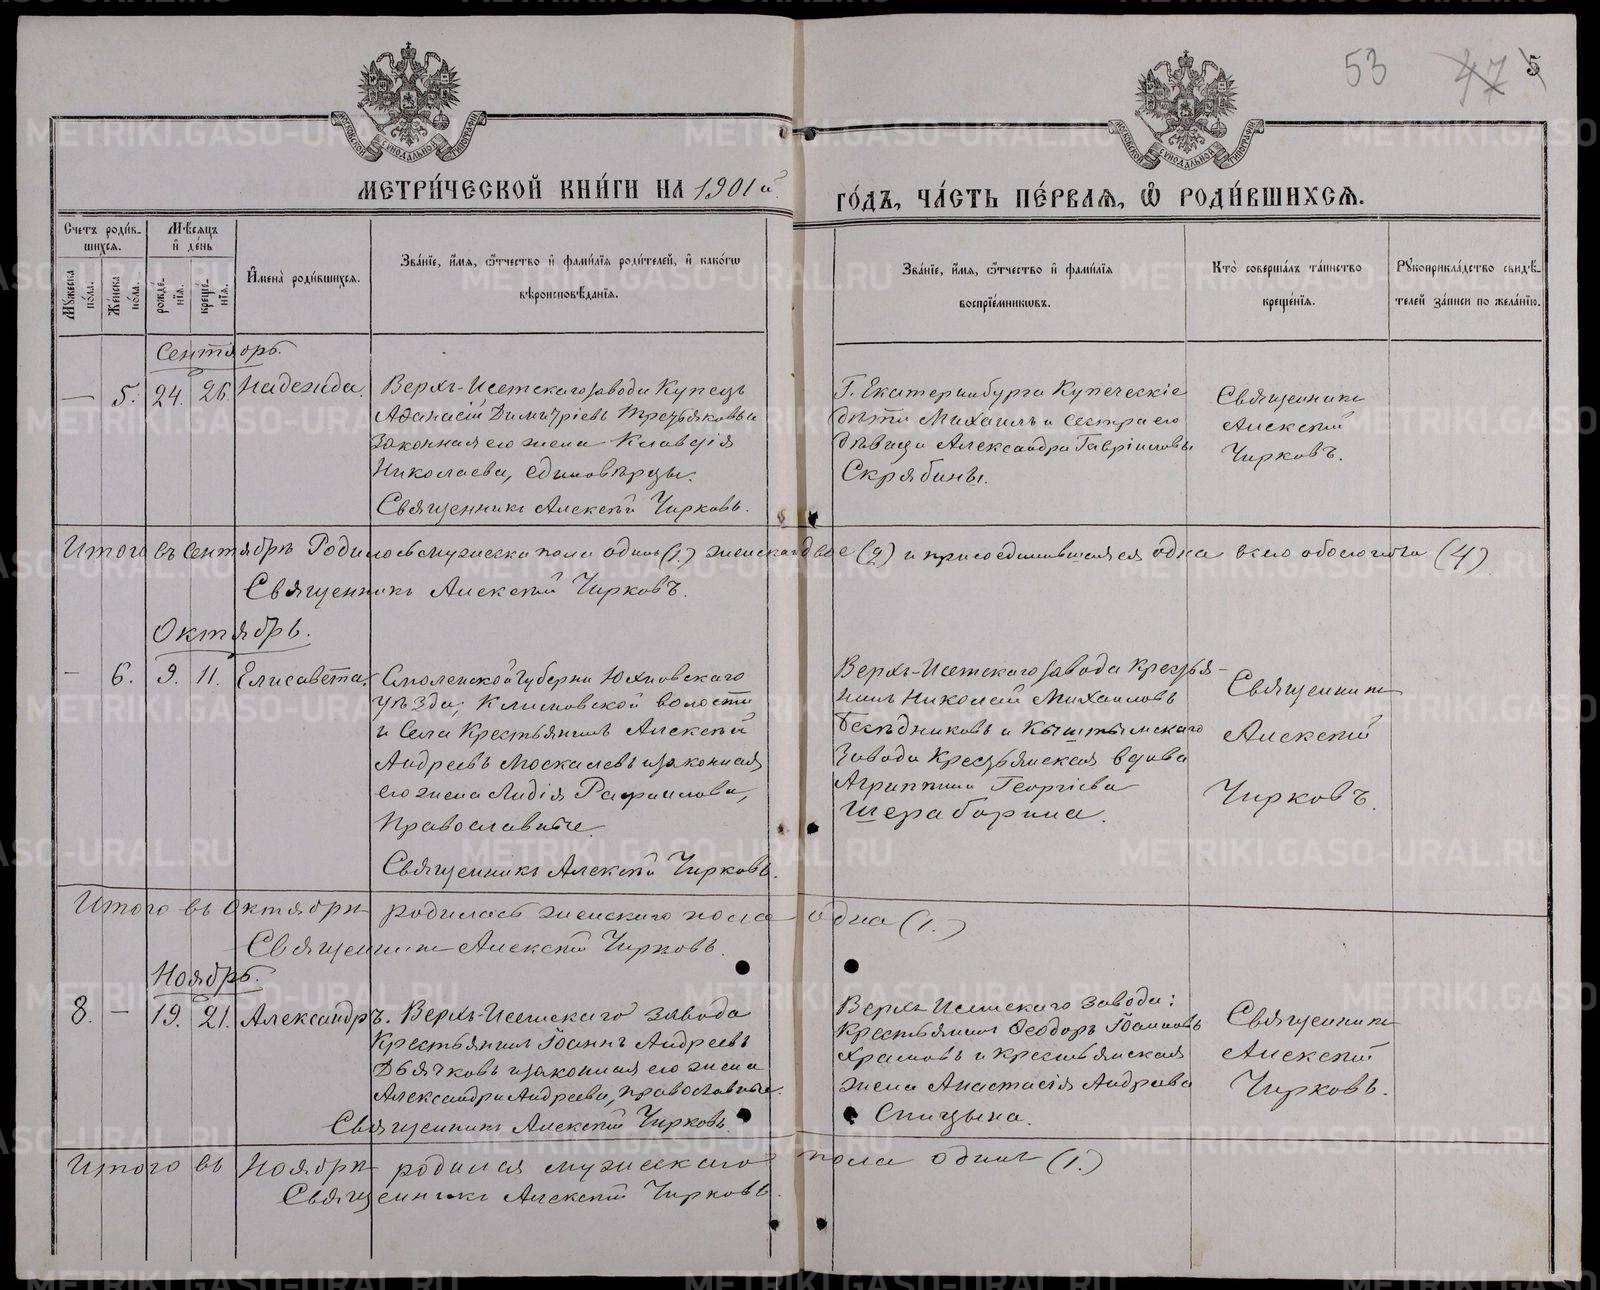 53 47 5
МЕТРИ́ЧЕСКОЙ КНИ́ГИ НА 1901й. ГО́ДЪ, ЧА́СТЬ ПЕ́РВАЯ, Ѡ҆ РОДИ́ВШИХСЯ.
Счетъ роди́в-
шихся.
Мꙋжеска по́ла.
Же́нска по́ла.
Мѣ́сяцъ и҆ де́нь
рожде́-
нїя.
креще́-
нїя.
И҆мена̀ роди́вшихся.
Зва́нїе, и҆́мя, ѻ҆́тчество и҆ фами́лїя роди́телей, и҆ како́гѡ
вѣроисповѣ́данїя.
Зва́нїе, и҆́мя, ѻ҆́тчество и҆ фами́лїя
воспрїе́мникѡвъ.
Кто̀ соверша́лъ та́инство
креще́нїя.
Рꙋкоприкла́дство свидѣ́-
телей за́писи по жела́нїю.
Сентябрь.
— 5. 24. 26. Надежда.
Верхъ-Исетскаго завода Купецъ
Аѳанасій Димитріевъ Третьяковъ и
Законная его жена Клавдія
Николаева, единовѣрцы.
Священникъ Алексѣй Чирковъ.
Г. Екатеринбурга Купеческіе
дѣти Михаилъ и сестра его
дѣвица Александра Гавріиловы
Скрябины.
Священникъ
Алексѣй
Чирковъ.
Итого въ Сентябрѣ Родилось мужеска пола одинъ (1.) женска двѣ (2) и присоединившаяся одна всего обоего пола (4)
Священникъ Алексѣй Чирковъ.
Октябрь.
— 6. 9. 11. Елисавета.
Смоленской Губерніи Юхновскаго
уѣзда, Климовской волости
и Села Крестьянинъ Алексѣй
Андреевъ Москалевъ и законная
его жена Лидія Рафаилова,
Православные.
Священникъ Алексѣй Чирковъ.
Верхъ-Исетскаго завода Крестья-
нинъ Николай Михаиловъ
Бесѣдниковъ и Кыштымскаго
Завода Крестьянская вдова
Агриппина Георгіева
Шераборина.
Священникъ
Алексѣй
Чирковъ.
Итого въ Октябрѣ родилась женскаго пола одна (1.)
Священникъ Алексѣй Чирковъ.
Ноябрь.
8. — 19. 21. Александръ.
Верхъ-Исетскаго завода
Крестьянинъ Іоаннъ Андреевъ
Дьячковъ и законная его жена
Александра Андреева, православные.
Священникъ Алексѣй Чирковъ.
Верхъ-Исетскаго завода:
Крестьянинъ Ѳеодоръ Іоанновъ
Храмовъ и крестьянская
жена Анастасія Андреева
Спицына.
Священникъ
Алексѣй
Чирковъ.
Итого въ Ноябрѣ родился мужескаго пола одинъ (1.)
Священникъ Алексѣй Чирковъ.
METRIKI.GASO-URAL.RU